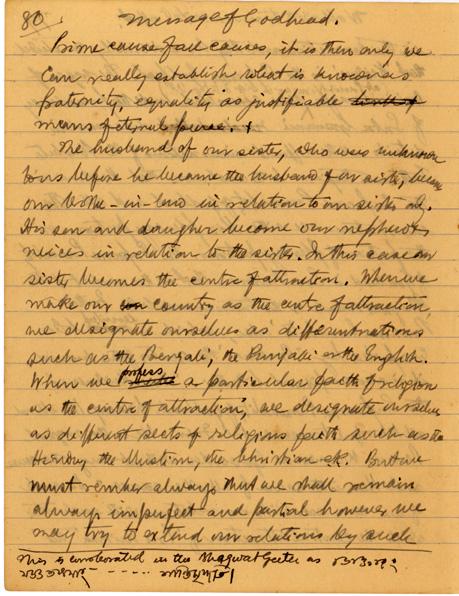 80
Message of Godhead.
Prime cause of all causes, it is then only we
can really establish what is known as
fraternity, equality as justifiable
means of eternal peace.
The husband of our sister, who was unknown
to us before he became the husband of our sister, became
our brother-in-law in relation to our sister only.
His son and daughter become our nephews
neices in relation to the sister. In this case our
sister becomes the centre of attraction. When we
make our country as the centre of attraction,
we designate ourselves as different nations
such as the Bengali, the Punjabi or the English.
When we profess a particular faith of religion
as the centre of attraction, we designate ourselves
as different sects of religious faith such as the
Hindoo, the Muslim, the Christian etc. But we
must remember always that we shall remain
always imperfect and partial however we
may try to extend our relations by such
This is corroborated in the Bhagwat Geeta as